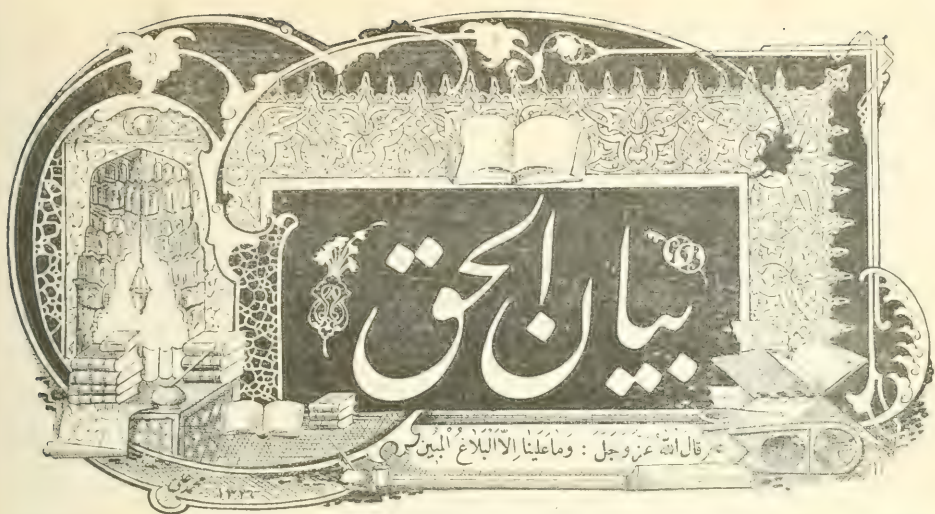 بيان الحق
قال الله عَزَّ وَجَلَّ : وَمَا عَلَيْنَا إِلَّا الْبَلَاغُ الْمُبِينُ
محمد علي
١٣٢٦